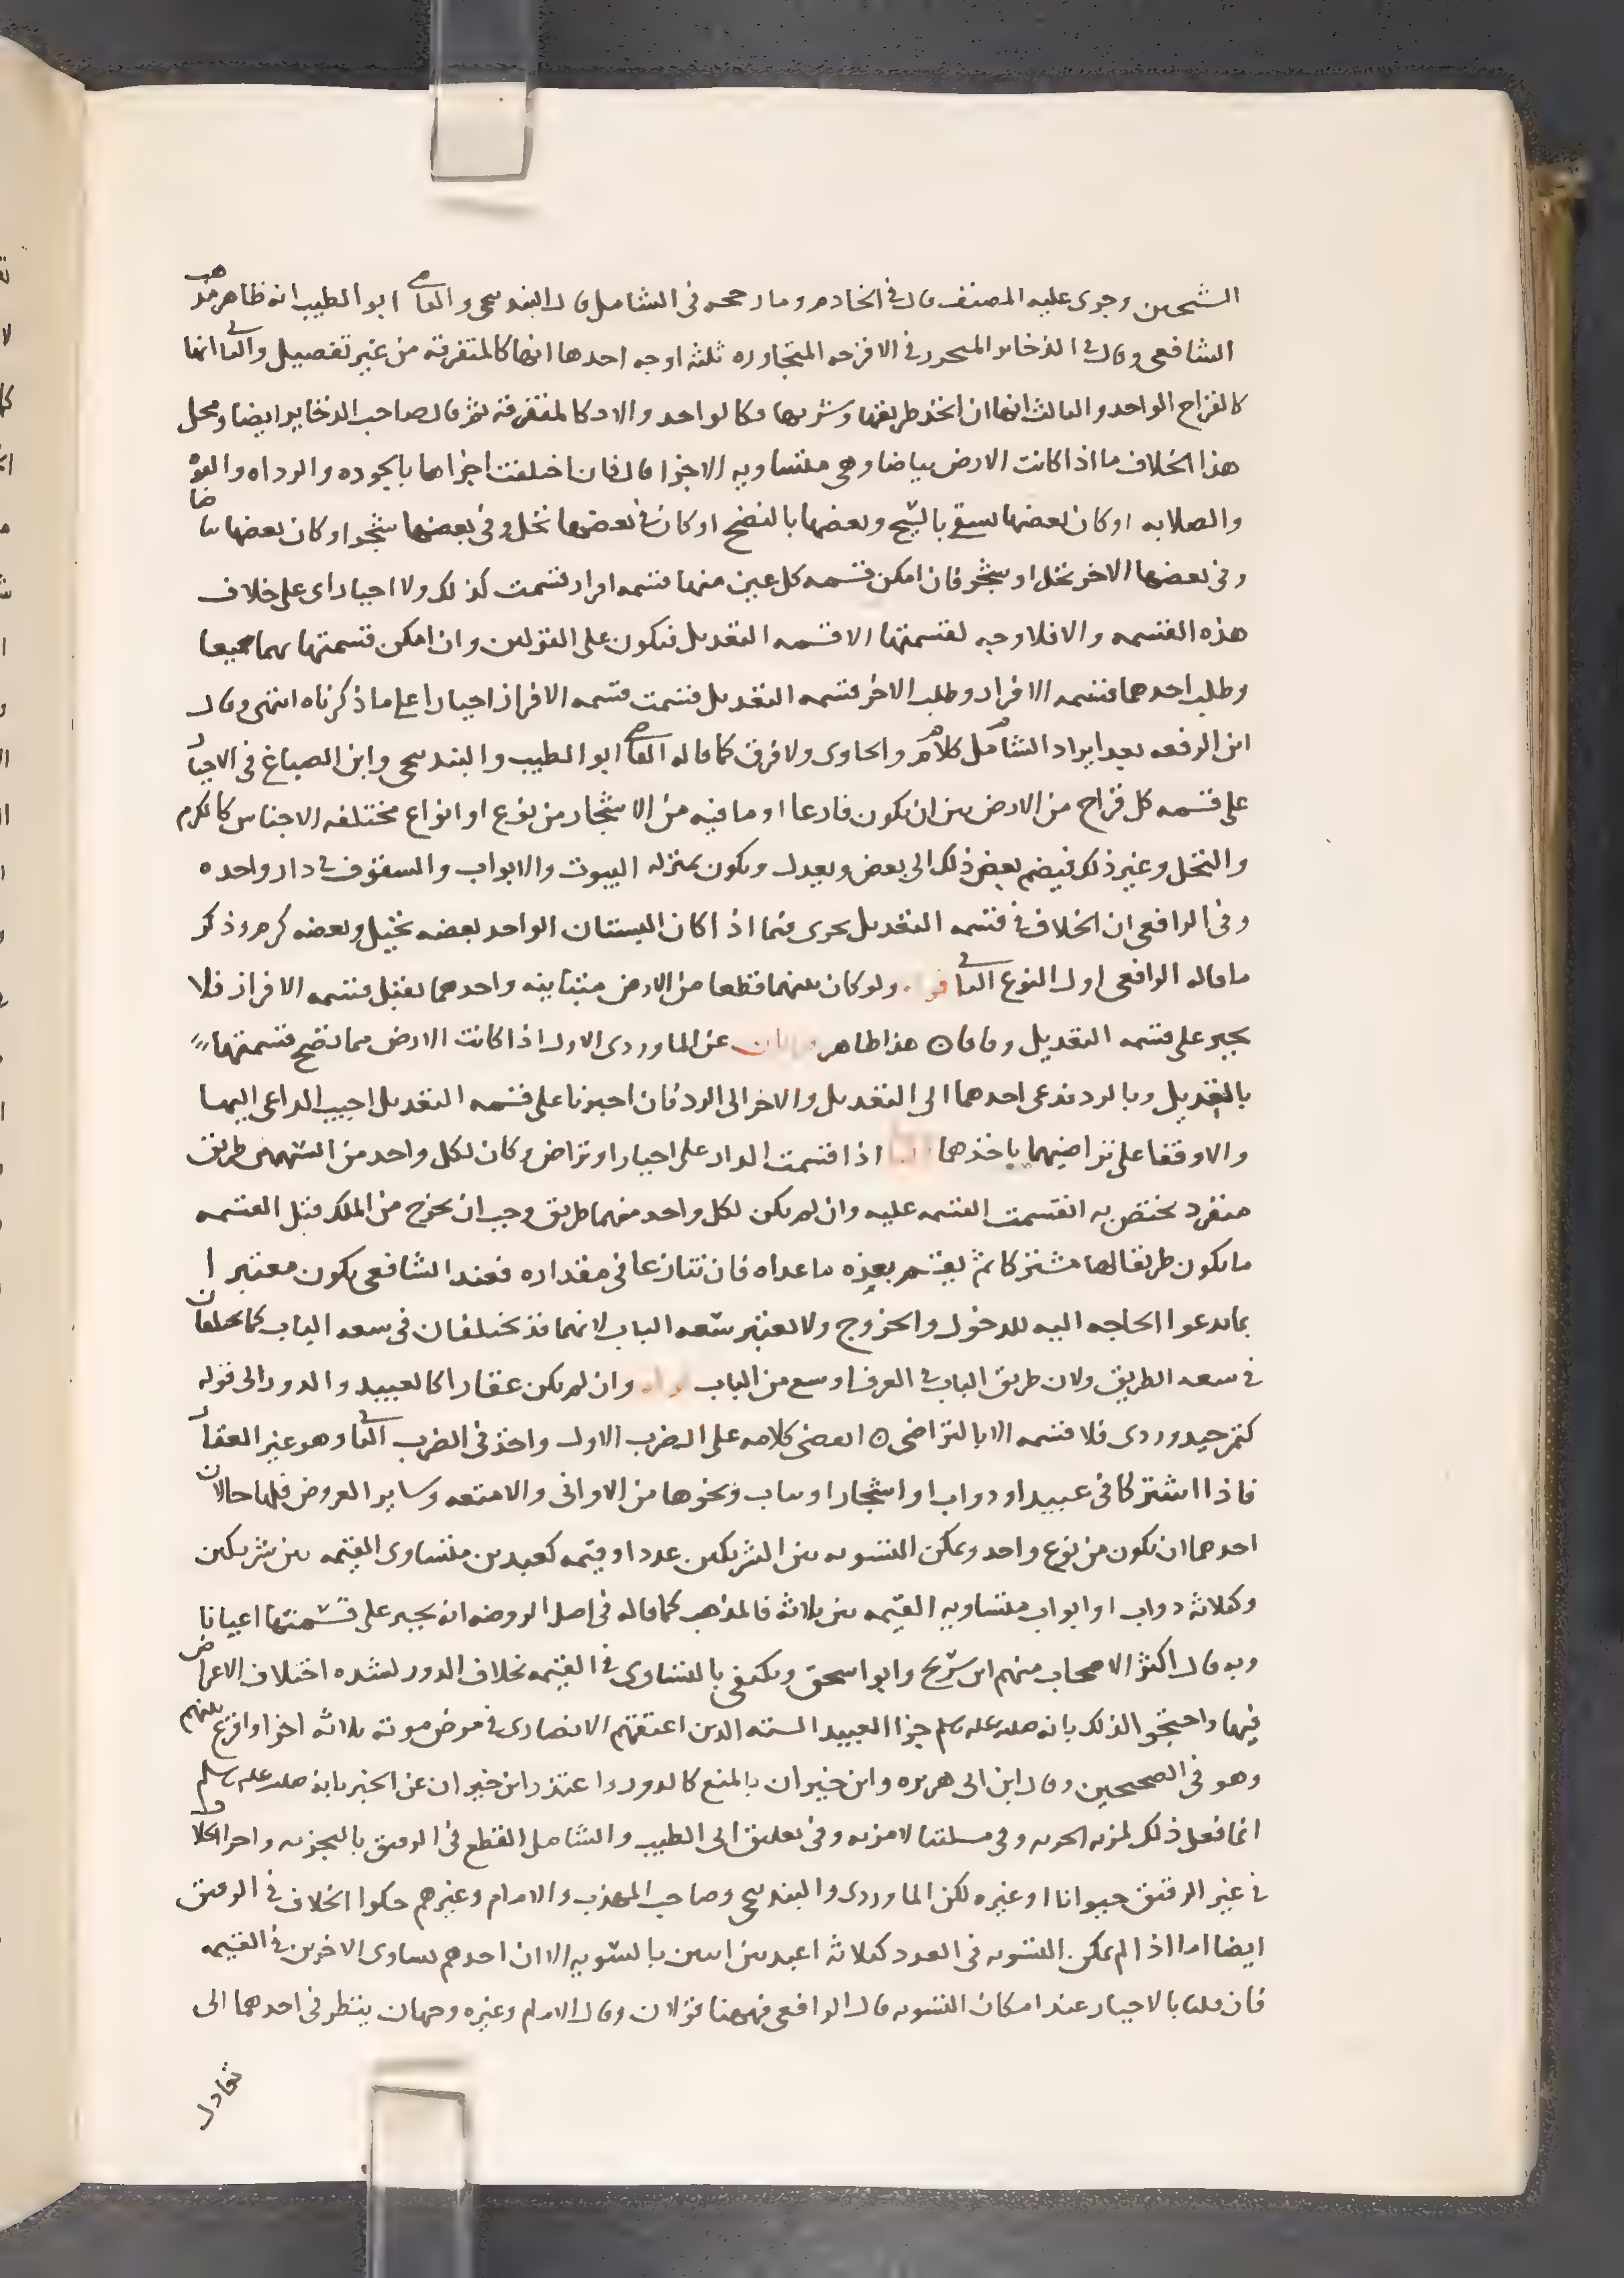 الشيخين وجرى عليه المصنف قال في الخادم وما رجحه في الشامل قال البندنيجي والقاضي ابو الطيب انه ظاهر مذهب
الشافعي وقال في الذخاير المتحرر في الاقرحه المتجاوره ثلثة اوجه احدها انها كالمتفرقه من غير تفصيل والثاني انها
كالقراح الواحد والثالث انها ان اتخذ طريقها وشربها فكالواحد والا فكالمتفرقه ثم قال صاحب الذخاير ايضا ومحل
هذا الخلاف ما اذا كانت الارض بياضا وهي متساويه الاجزا قال فان اختلفت اجزاها بالجوده والرداه والقوه
والصلابه او كان بعضها يسقى بالسيح وبعضها بالنضح او كان في بعضها نخل وفي بعضها شجر او كان بعضها بياضا
وفي بعضها الاخر نخل او شجر فان امكن قسمه كل عين منها قسمه افراز قسمت كذلك ولا اجبار اي على خلاف
هذه القسمه والا فلا وجه لقسمتها الا قسمه التعديل فيكون على القولين وان امكن قسمتها بهما جميعا
وطلب احدهما قسمه الافراز وطلب الاخر قسمه التعديل قسمت قسمه الافراز اجبارا على ما ذكرناه انتهى وقال
ابن الرفعه بعد ايراد الشامل كلام والحاوي ولا فرق كما قاله القاضي ابو الطيب والبندنيجي وابن الصباغ في الاجبار
على قسمه كل قراح من الارض بين ان يكون فارعا او ما فيه من الاشجار من نوع او انواع مختلفه الاجناس كالكرم
والنخل وغير ذلك فيضم بعض ذلك الى بعض ويعدل ويكون بمنزله البيوت والابواب والسقوف في دار واحده
وفي الرافعي ان الخلاف في قسمه التعديل يجرى فيما اذا كان البستان الواحد بعضه نخيل وبعضه كرم وذكر
ما قاله الرافعي اول النوع الثاني ولو كان بينهما قطعا من الارض متباينه واحدهما يقبل قسمه الافراز فلا
يجبر على قسمه التعديل وفاقا هذا ظاهر عن الماوردي الاول اذا كانت الارض مما تصح قسمتها
بالتعديل وبالرد فدعى احدهما الى التعديل والاخر الى الرد فان اجبرنا على قسمه التعديل اجيب الداعي اليها
والا وقفا على تراضيهما باحدهما اذا قسمت الدار على اجبار او تراض وكان لكل واحد من السهمين طريق
منفرد يختص به انقسمت القسمه عليه وان لم يكن لكل واحد منهما طريق وجب ان يخرج من الملك قبل القسمه
ما يكون طريقا لها مشتركا ثم يقتسم بعده ما عداه فان تنازعا في مقداره فعند الشافعي يكون معتبرا
بما تدعوا الحاجه اليه للدخول والخروج ولا تعتبر سعه الباب لانهما قد يختلفان في سعه الباب كما يختلفان
في سعه الطريق ولان طريق الباب في العرف اوسع من الباب وان لم يكن عقارا كالعبيد والدور الى قوله
كتمر جيد وردي فلا قسمه الا بالتراضي انقضى كلامه على الضرب الاول واخذ في الضرب الثاني وهو غير العقار
فاذا اشتركا في عبيد او دواب او اشجار او ثياب ونحوها من الاواني والامتعه وساير العروض فلها حالان
احدهما ان تكون من نوع واحد ويمكن التسويه بين الشريكين عددا وقيمه كعبدين متساوي القيمه بين شريكين
وكثلاثه دواب او ابواب متساويه القيمه بين ثلاثه فالمذهب كما قاله في اصل الروضه انه يجبر على قسمتها اعيانا
وبه قال اكثر الاصحاب منهم ابن سريج وابو اسحق ويكتفي بالتساوي في القيمه بخلاف الدور لشده اختلاف الاغراض
فيها واحتجوا لذلك بانه صلى الله عليه وسلم جزا العبيد السته الذين اعتقهم الانصاري في مرض موته ثلاثه اجزا واقرع بينهم
وهو في الصحيحين وقال ابن ابي هريره وابن خيران بالمنع كالدور واعتذر ابن خيران عن الخبر بانه صلى الله عليه وسلم
انما فعل ذلك لمزيه الحريه وفي مسلتنا لا مزيه وفي تعليق ابي الطيب والشامل القطع في الرقيق بالتجزيه واجرا الخلاف
في غير الرقيق حيوانا او غيره لكن الماوردي والبندنيجي وصاحب المهذب والامام وغيرهم حكوا الخلاف في الرقيق
ايضا اما اذا لم يمكن التسويه في العدد كثلاثه اعبد بين اثنين بالسويه الا ان احدهم يساوي الاخرين في القيمه
فان قلنا بالاجبار عند امكان التسويه قال الرافعي فههنا قولان وقال الامام وغيره وجهان ينظر في احدهما الى
تعادل